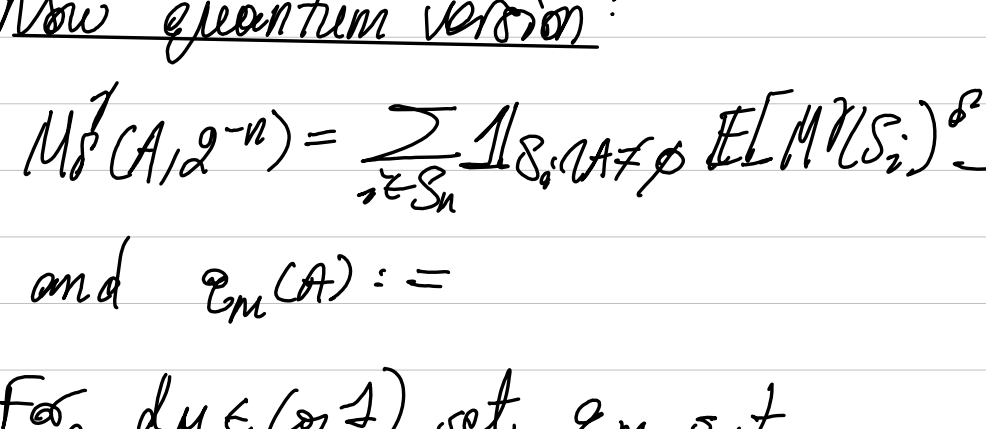 Now quantum version:
M_δ^γ(A, 2^{-n}) = Σ_{i∈S_n} 𝟙_{S_i∩A≠∅} E[M^γ(S_i)^δ
and q_M(A) :=
For d_M ∈ (0, 1) set q_M s.t